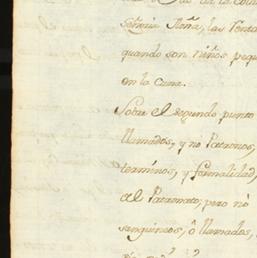 de la
Señora Ilaña, las Venta
quando son niños pequ
en la Cuna.
Sobre el segundo punto
llamados, y no Patronos,
terminos, y formalidad,
al Patronato; pero no
sanguineos, ô llamados,